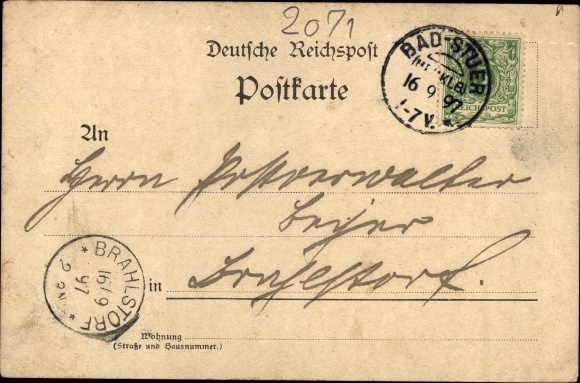 2071
Deutsche Reichspost
Postkarte
BAD-STUER
16 9 97
-7V.
REICHSPOST
An
Herrn Postverwalter
Beyer
in Brahlstorf.
BRAHLSTORF
16/9
97
2
Wohnung
(Straße und Hausnummer.)